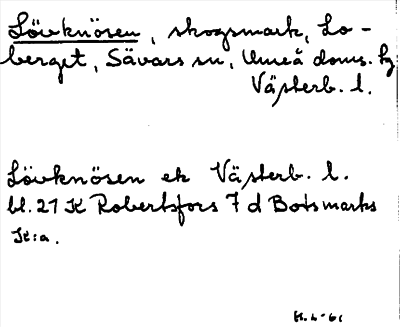 Lövknösen, skogsmark, Lo-
berget, Sävars sn, Umeå doms. hg
Västerb. l.
Lövknösen ek Västerb. l.
bl. 21 K Robertsfors 7 d Botsmarks
Jk:a.